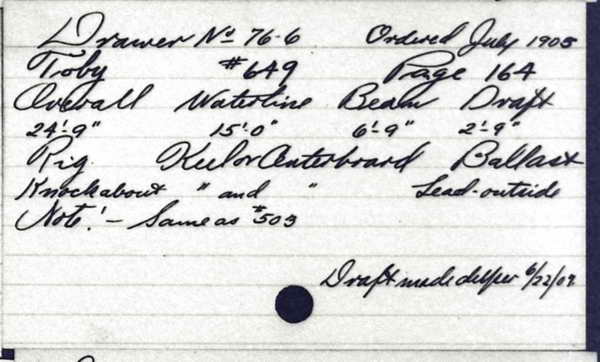 Drawer No 76-6 Ordered July 1905
Toby #649 Page 164
Overall Waterline Beam Draft
24'-9" 15'-0" 6'-9" 2'-9"
Rig Keel or Centerboard Ballast
Knockabout " and " Lead-outside
Note! - Same as #503
Draft made deeper 6/22/09.